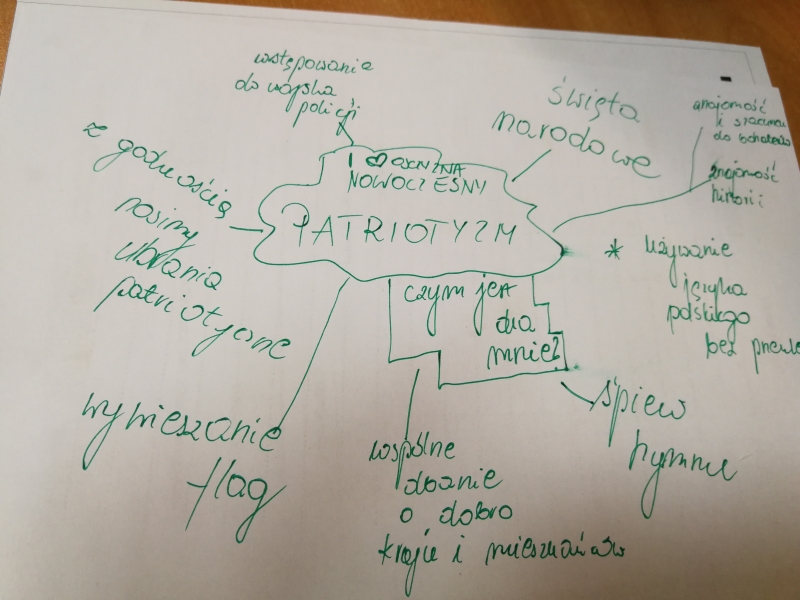 wstępowanie
do wojska
policji
święta
narodowe
znajomość
i szacunek
do bohaterów
znajomość
historii
I ♡ OJCZYZNA
NOWOCZESNY
PATRIOTYZM
z godnością
nosimy
ubrania
patriotyczne
* używanie
języka
polskiego
bez
czym jest
dla
mnie?
śpiew
hymnu
wywieszanie
flag
wspólne
dbanie
o dobro
kraju i mieszkańców